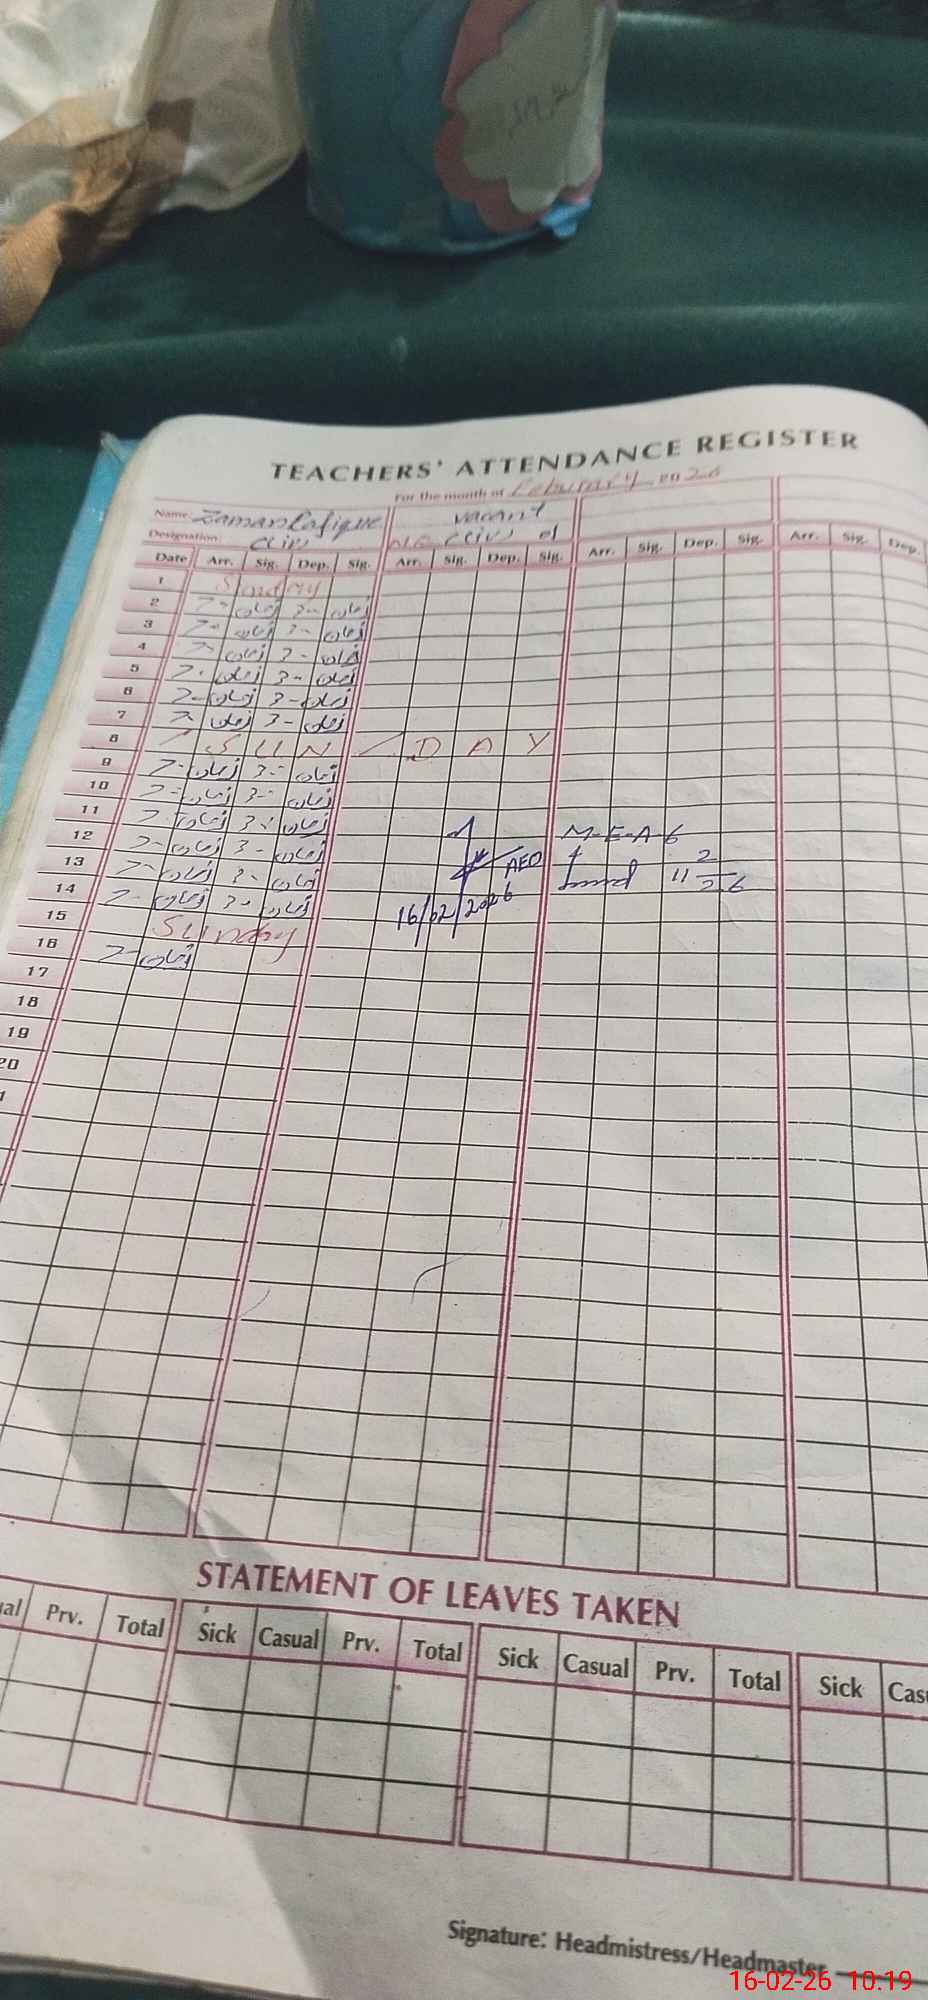 TEACHERS' ATTENDANCE REGISTER
For the month of Feburary 2026
Name: Zaman Rafique vacant
Designation: C(iv) C(iv)
Date Arr. Sig. Dep. Sig. Arr. Sig. Dep. Sig. Arr. Sig. Dep. Sig. Arr. Sig. Dep.
1 Sunday
2 7- زمان 3- زمان
3 7- زمان 3- زمان
4 7- زمان 3- زمان
5 7- زمان 3- زمان
6 7- زمان 3- زمان
7 7- زمان 3- زمان
8 S U N D A Y
9 7- زمان 3- زمان
10 7- زمان 3- زمان
11 7- زمان 3- زمان
12 7- زمان 3- زمان M-E-A-6
13 7- زمان 3- زمان AEO 11/2/26
14 7- زمان 3- زمان 16/02/2026
15 Sunday
16 7- زمان
17
18
19
20
STATEMENT OF LEAVES TAKEN
Prv. Total Sick Casual Prv. Total Sick Casual Prv. Total Sick
Signature: Headmistress/Headmaster
16-02-26 10:19